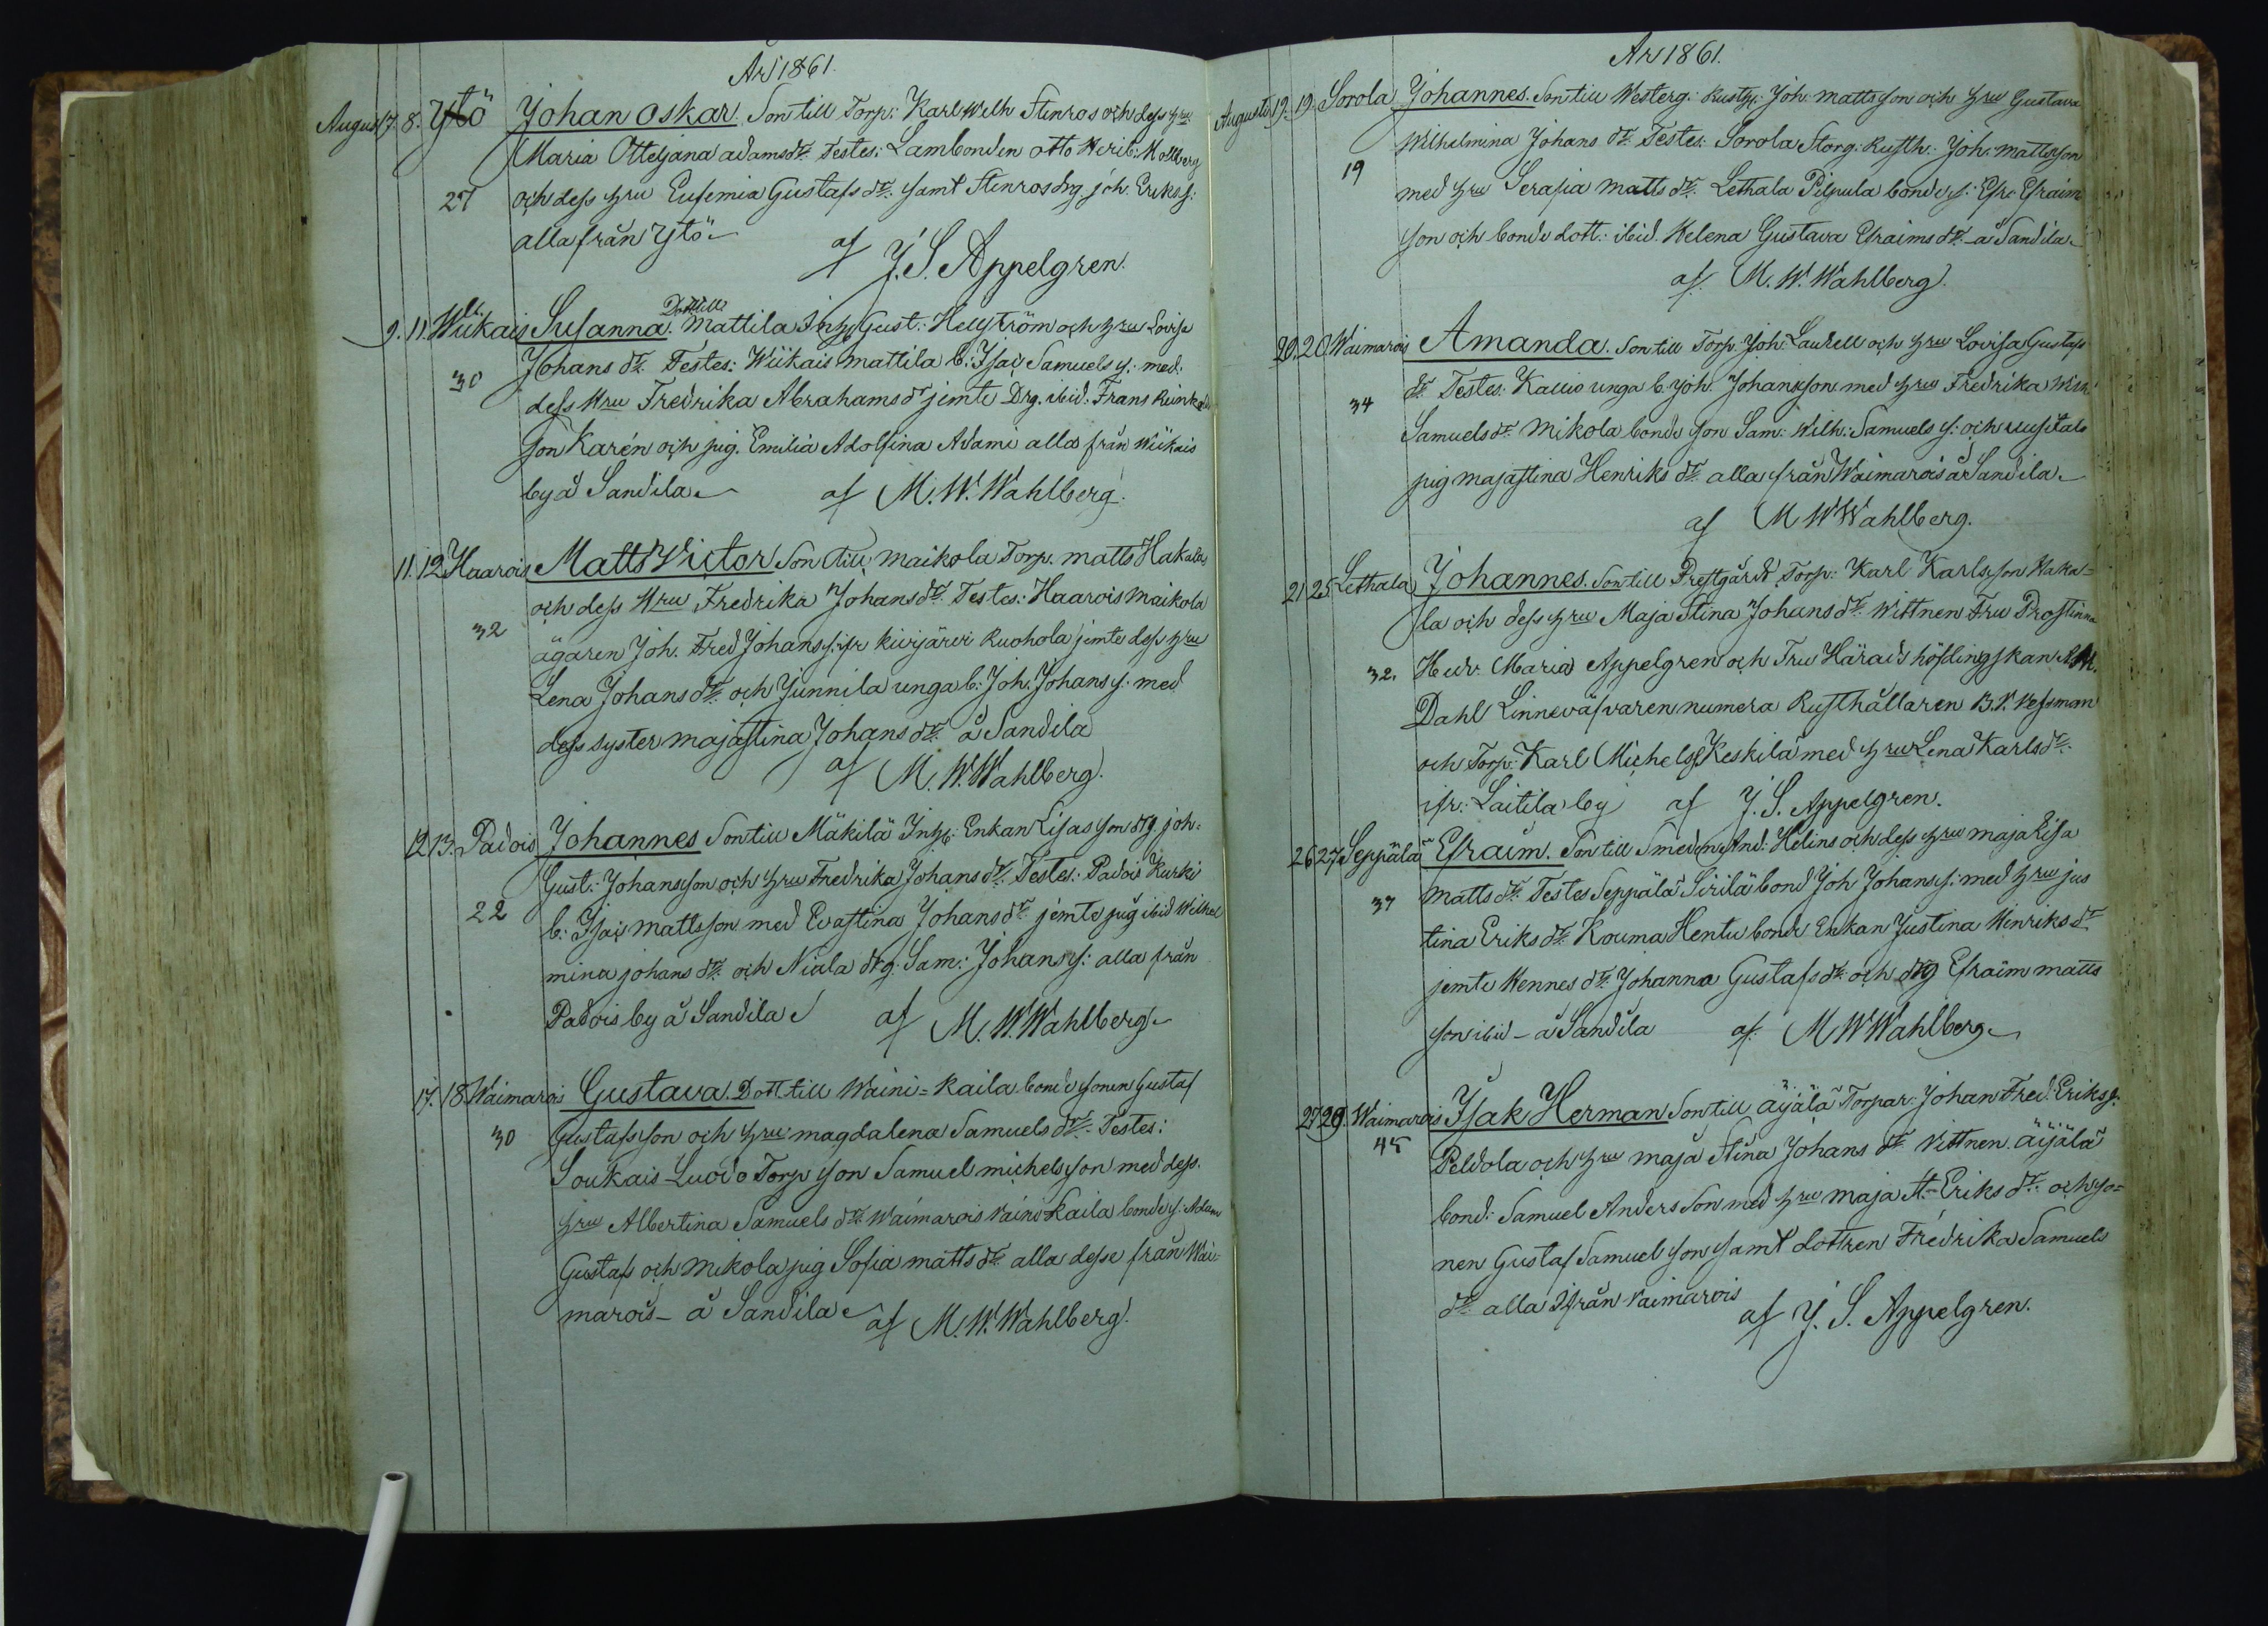 År 1861.
August 7. 8. Ytö Johan Oskar. Son till Torp: Karl Wilh Stenros och dess hru
Maria Ottiljana adamsdr. Testes: Lambonden Otto Herib: Mollberg
27 och dess hru Eufemia Gustafs dr. samt Stenros drg joh. Eriks s:
alla från Ytö
af J. S. Appelgren.
9. 11. Wiikais Susanna. Dott till Mattila Inh: Gust: Hellström och hru Lovisa
Johans dr. Testes: Wiikais Mattila b: Isac Samuels s. med
30 dess Hru Fredrika Abrahams dr jemte Drg. ibid: Frans
son Karén och pig. Emilia Adolfina Adami alla från Wiikais
by å Sandila af M. W. Wahlberg.
11. 12 Haarois Matts Victor Son till Maikola Torp. Matts Hakala
och dess Hru Fredrika Johans dr. Testes: Haarois Maikola
32 ägaren Joh. Fred Johans s: ifr Kivijärvi Ruohola jemte dess hru
Lena Johans dr. och Junnila unga b: Joh. Johans s. med
dess syster Majastina Johans dr å Sandila
af M. W. Wahlberg.
12 13. Padois Johannes Son till Mäkilä Inh: Enkan Lisas son drg. joh:
Gust: Johansson och hru Fredrika Johans dr. Testes: Padois Kurki
22 b: Isac Mattsson med Evastina Johans dr. jemte pig ibid Wilhel
mina johans dr. och Niala drg. Sam: Johans s: alla från
Padois by å Sandila af M. W. Wahlberg
17. 18. Waimarois Gustava. Dott. till Waini=Kaila bonde sonen Gustaf
30 Gustafsson och hru Magdalena Samuels dr. Testes:
Soukais Luodo Torp son Samuel Michelsson med dess
hru Albertina Samuels dr. Waimarois Vaini Kaila bonde s: Adam
Gustafs och Mikola pig Sofia Matts dr. alla desse från Wai=
marois - å Sandila af M. W. Wahlberg.
År 1861.
Augusti 19. 19. Sorola Johannes. Son till Westerg: Rusth: Joh. Mattsson och hru Gustava
Wilhelmina Johans dr. Testes: Sorola Storg: Rusth: Joh. Mattsson
19 med hru Serafia Matts dr. Lethala Pilpula bonde s: Efr: Efraim
son och bonde dott: ibid. Helena Gustava Efraims dr. å Sandila
af M. W. Wahlberg.
20. 20. Waimarois Amanda. Son till Torp: Joh: Laurell och hru Lovisa Gustafs
dr. Testes: Kallio unga b. Joh. Johansson med hru Fredrika Wilh:
34 Samuels dr. Mikola bonde son Sam: Wilh: Samuels s: och uusitalo
pig Majastina Henriks dr. alla från Waimarois å Sandila
af M W Wahlberg.
21 25 Lethala Johannes. Son till Prestgårds Torp: Karl Karlsson Haka=
la och dess hru Maja Stina Johans dr. Wittnen Fru Prostinna
32. Hedv: Maria Appelgren och Fru Härads höfdingskan
Dahl Linneväfvaren numera Rusthållaren B. V. Vessman
och Torp: Karl Michels s Keskila med hru Lena Karls dr.
ifr: Laitila by af J. S. Appelgren.
26 27 Seppälä Efraim. Son till Smeden And: Helins och dess hru Maja Lisa
37 Matts dr. Testes Seppälä Sirilä bond Joh Johans s: med hru jus
tina Eriks dr. Kouma Hentu bond Enkan Justina Hinriks dr
jemte Hennes dr. Johanna Gustafs dr. och drg Efraim Matts
son ibid - å Sandila af M W Wahlberg
27 29. Waimarois Isak Herman Son till Äijälä Torpar: Johan Fred: Eriks s.
45 Peldola och hru Maja Stina Johans dr. Vittnen Äijälä
bond: Samuel Anders Son med hru Maja St. Eriks dr. och so=
nen Gustaf Samuelson samt dottren Fredrika Samuels
dr. alla ifrån Vaimarois af J. S. Appelgren.